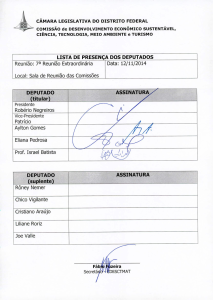 CÂMARA LEGISLATIVA DO DISTRITO FEDERAL
COMISSÃO DE DESENVOLVIMENTO ECONÔMICO SUSTENTÁVEL,
CIÊNCIA, TECNOLOGIA, MEIO AMBIENTE E TURISMO
LISTA DE PRESENÇA DOS DEPUTADOS
Reunião: 7ª Reunião Extraordinária Data: 12/11/2014
Local: Sala de Reunião das Comissões
DEPUTADO (titular) ASSINATURA
Presidente
Robério Negreiros
Vice-Presidente
Patrício
Aylton Gomes
Eliana Pedrosa
Prof. Israel Batista
DEPUTADO (suplente) ASSINATURA
Rôney Nemer
Chico Vigilante
Cristiano Araújo
Liliane Roriz
Joe Valle
Secretário